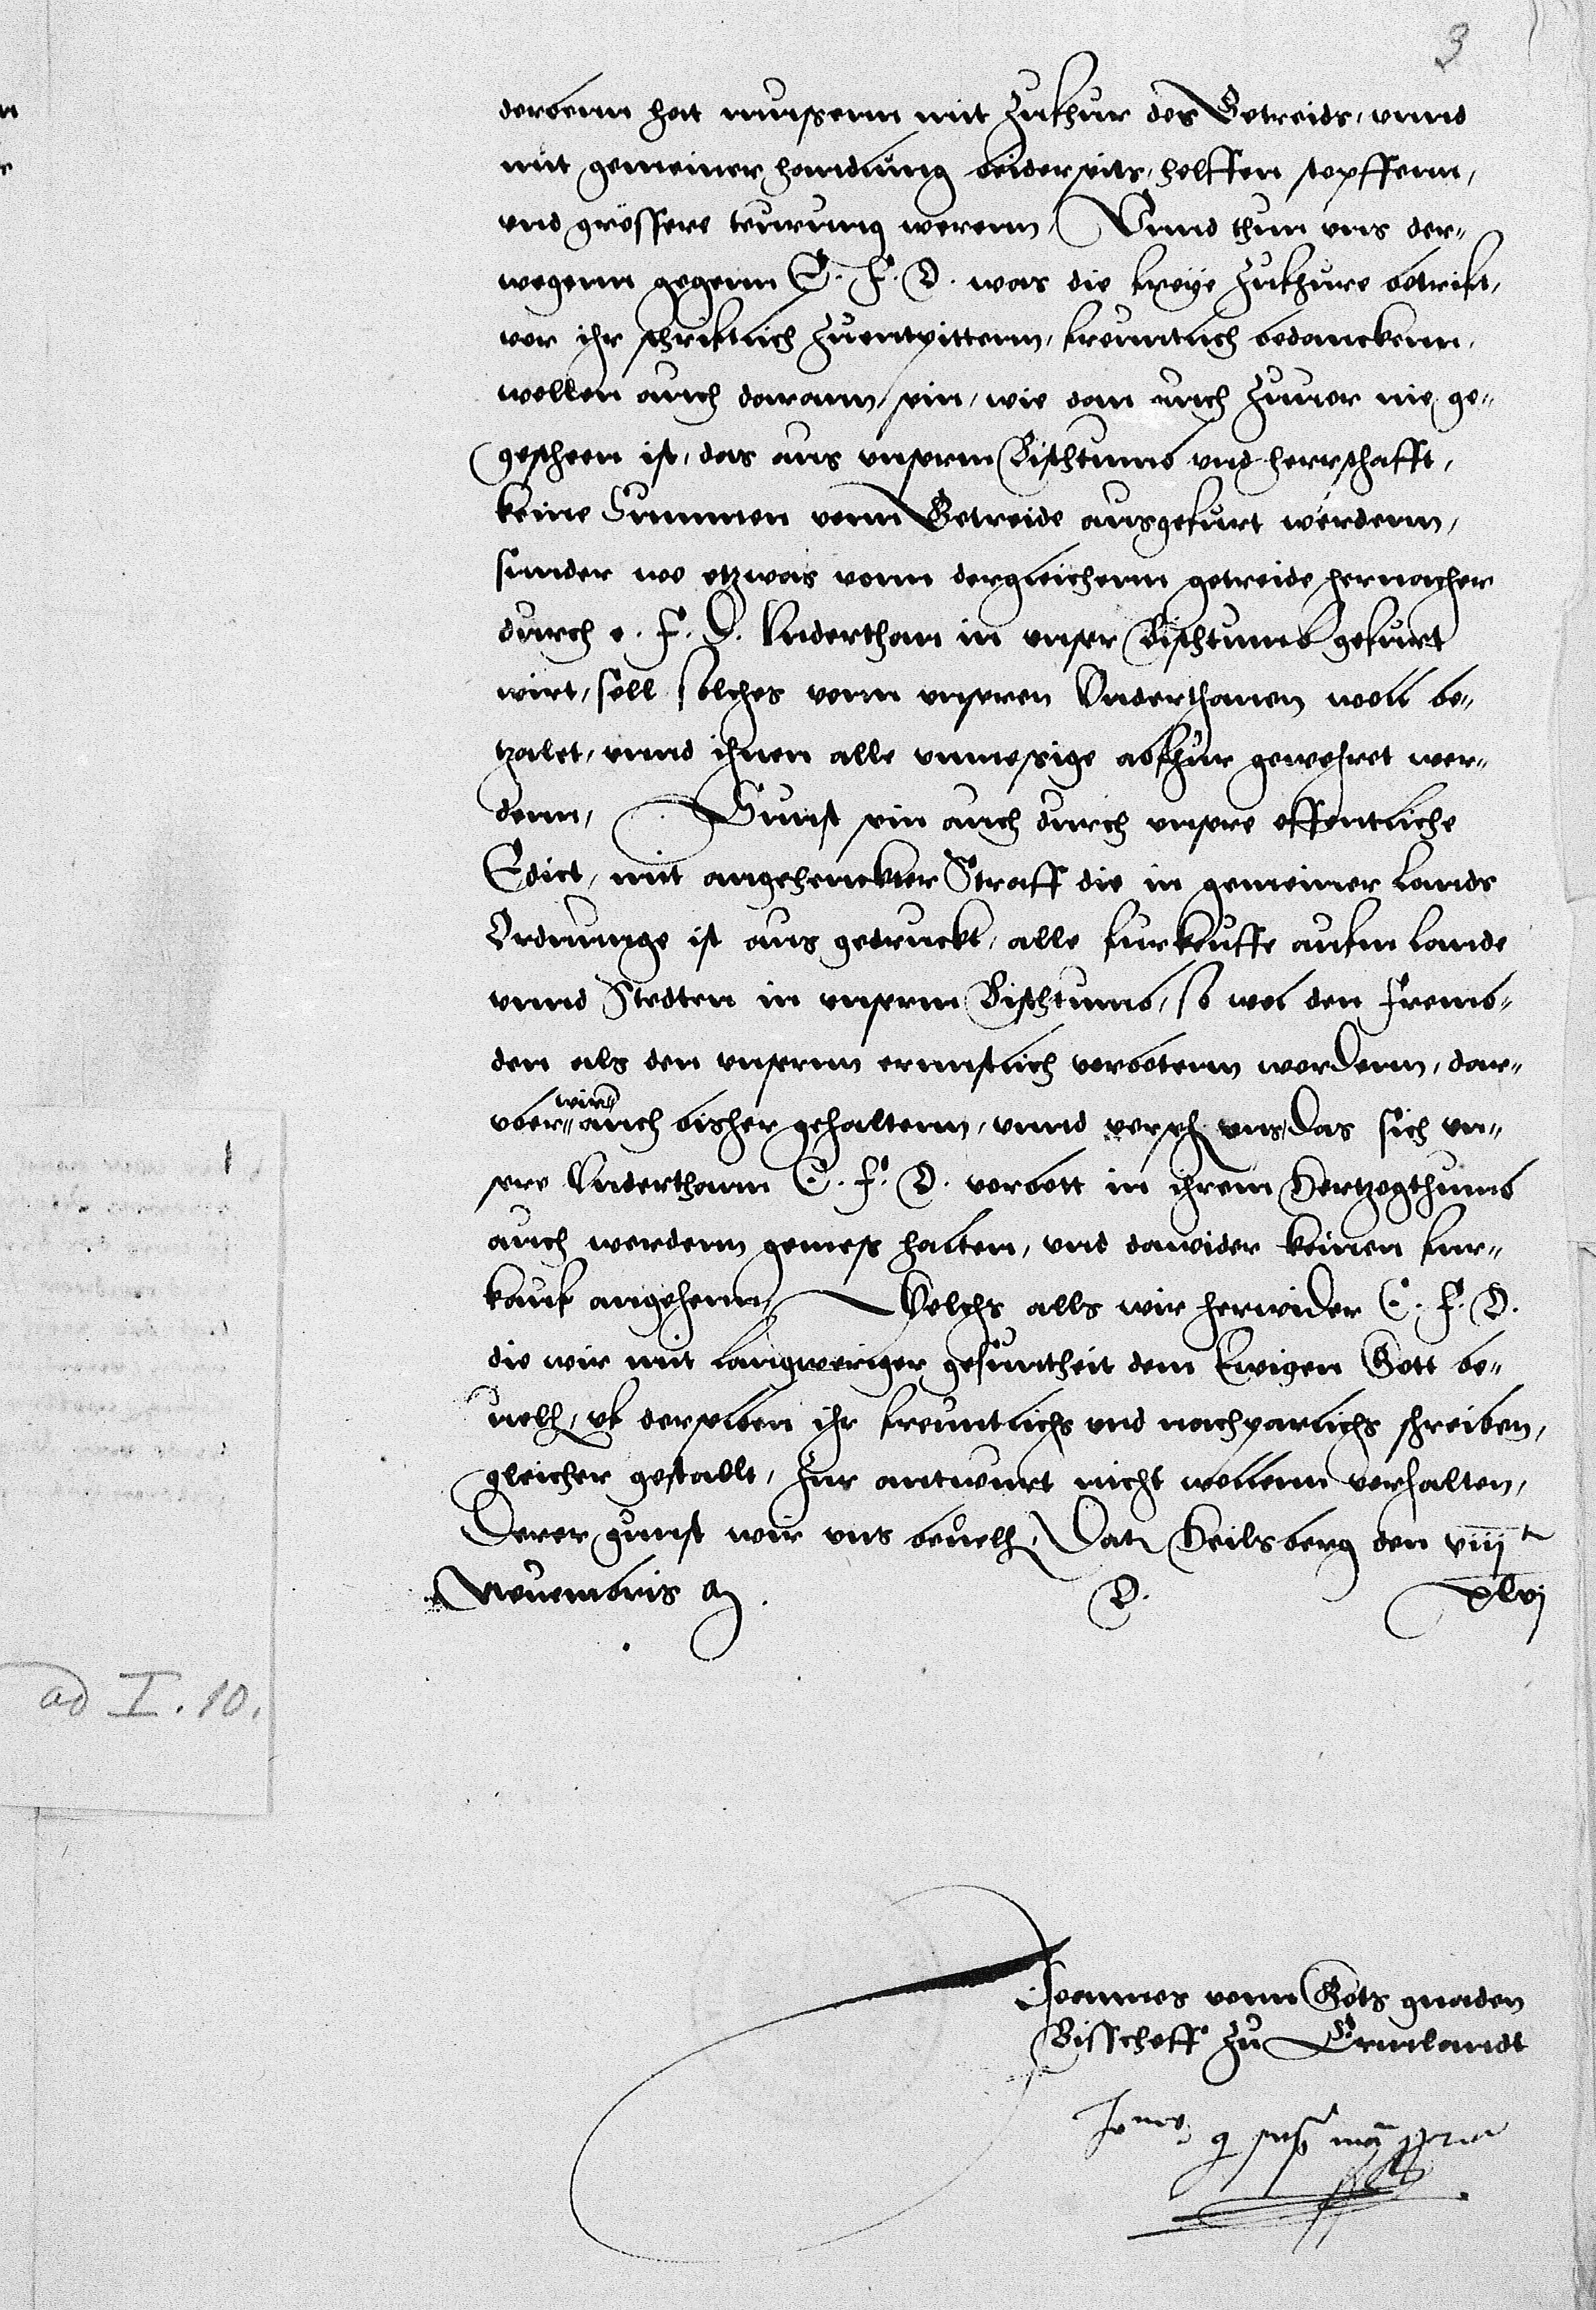 3
derbenn hat mussenn mit Zufhur des Getreids, vnnd
mit gemeiner handlung beiderseits, helffen stopffenn,
vnd grössere teurung werenn, Vnnd thun vns der-
wegenn gegenn E. F. D. was die freye Zufhure betrifft,
vor ihr schrifftlich Zuentpittenn, freuntlich bedanckenn,
wollen auch darann sein, wie dan auch Zuuor nie ge-
gescheen ist, das aus vnserm Bischtumb vnd herrschafft,
keine Summen vonn Getreide ausgefurt werdenn,
sunder wo etzwas vonn dergleichenn getreide hernacher
durch e. F. D. Vnderthan in vnser Bischtumb gefurt
wirt, soll solches vonn vnseren Vnderthanen woll be-
tzalet, vnnd ihnen alle vnmesige abfhur gewehret wer-
denn, Sunst sein auch durch vnsere offentliche
Edict, mit angehenckter Straff die in gemeiner Lands
Ordnunge ist aus gedruckt, alle furkeuffe aufm Lande
vnnd Stedten in vnserm Bischtumb, so wol den Fremb-
den als den vnsernn ernnstlich verbotenn wordenn, dar-
wir
vber auch bisher gehaltenn, vnnd verseh vns das sich vn-
sere Vnderthann E. F. D. verbott in ihrem Hertzogthumb
auch werdenn gemes halten, vnd dawider keinen fur-
kauf angehenn, Welchs alls wir herwider E. F. D.
die wir mit langweriger gesuntheit dem Ewigen Gott be-
uelh, vf derselben ihr freuntlichs vnd nachparlichs schreiben,
gleicher gestallt, Zur antwurt nicht wollenn verhalten,
Derer gunst wir vns beuelh, Dat Heilsberg den viij
Nouembris A. D. xlvj
1
ad I. 10.
Joannes vonn Gots gnaden
Bisschoff Zu Ermlandt